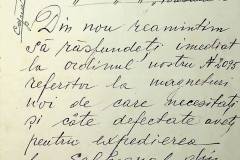 Din nou reamintim
să răspundeți imediat
la ordinul nostru A 2095
referitor la magneturi
noi de care necesitați
și câte defectate aveți
pentru expedierea